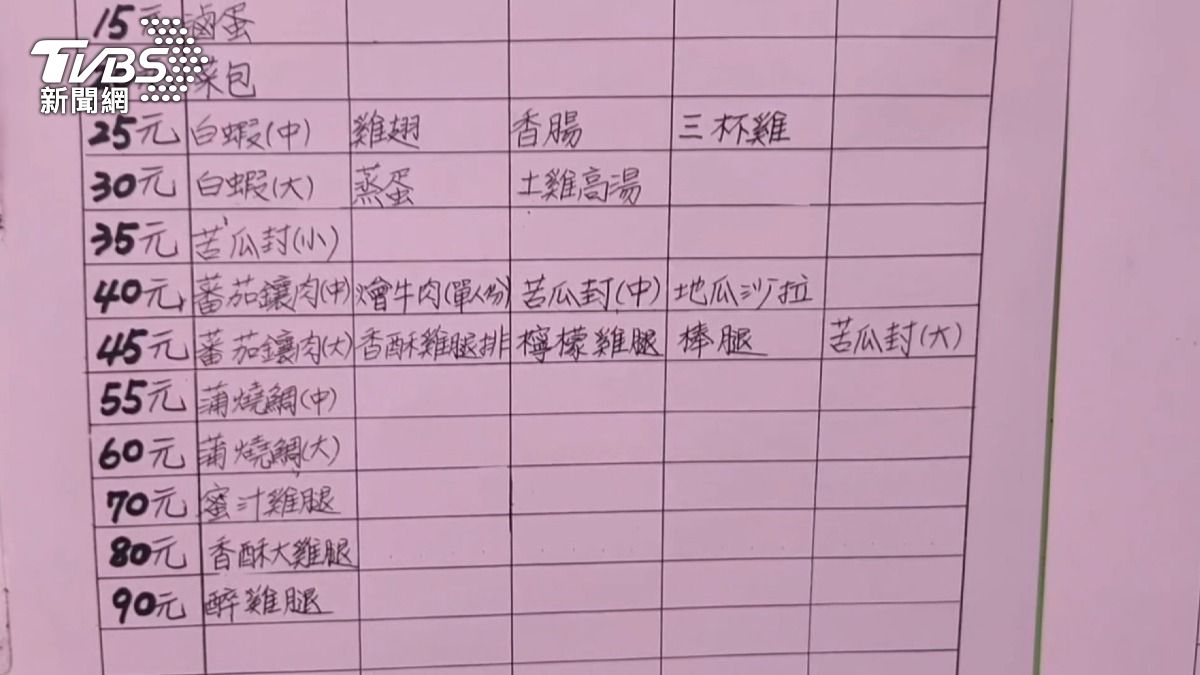 15元 滷蛋
TVBS
菜包
新聞網
25元 白蝦(中) 雞翅 香腸 三杯雞
30元 白蝦(大) 蒸蛋 土雞高湯
35元 苦瓜封(小)
40元 蕃茄鑲肉(中) 燴牛肉(單人份) 苦瓜封(中) 地瓜沙拉
45元 蕃茄鑲肉(大) 香酥雞腿排 檸檬雞腿 棒腿 苦瓜封(大)
55元 蒲燒鯛(中)
60元 蒲燒鯛(大)
70元 蜜汁雞腿
80元 香酥大雞腿
90元 醉雞腿